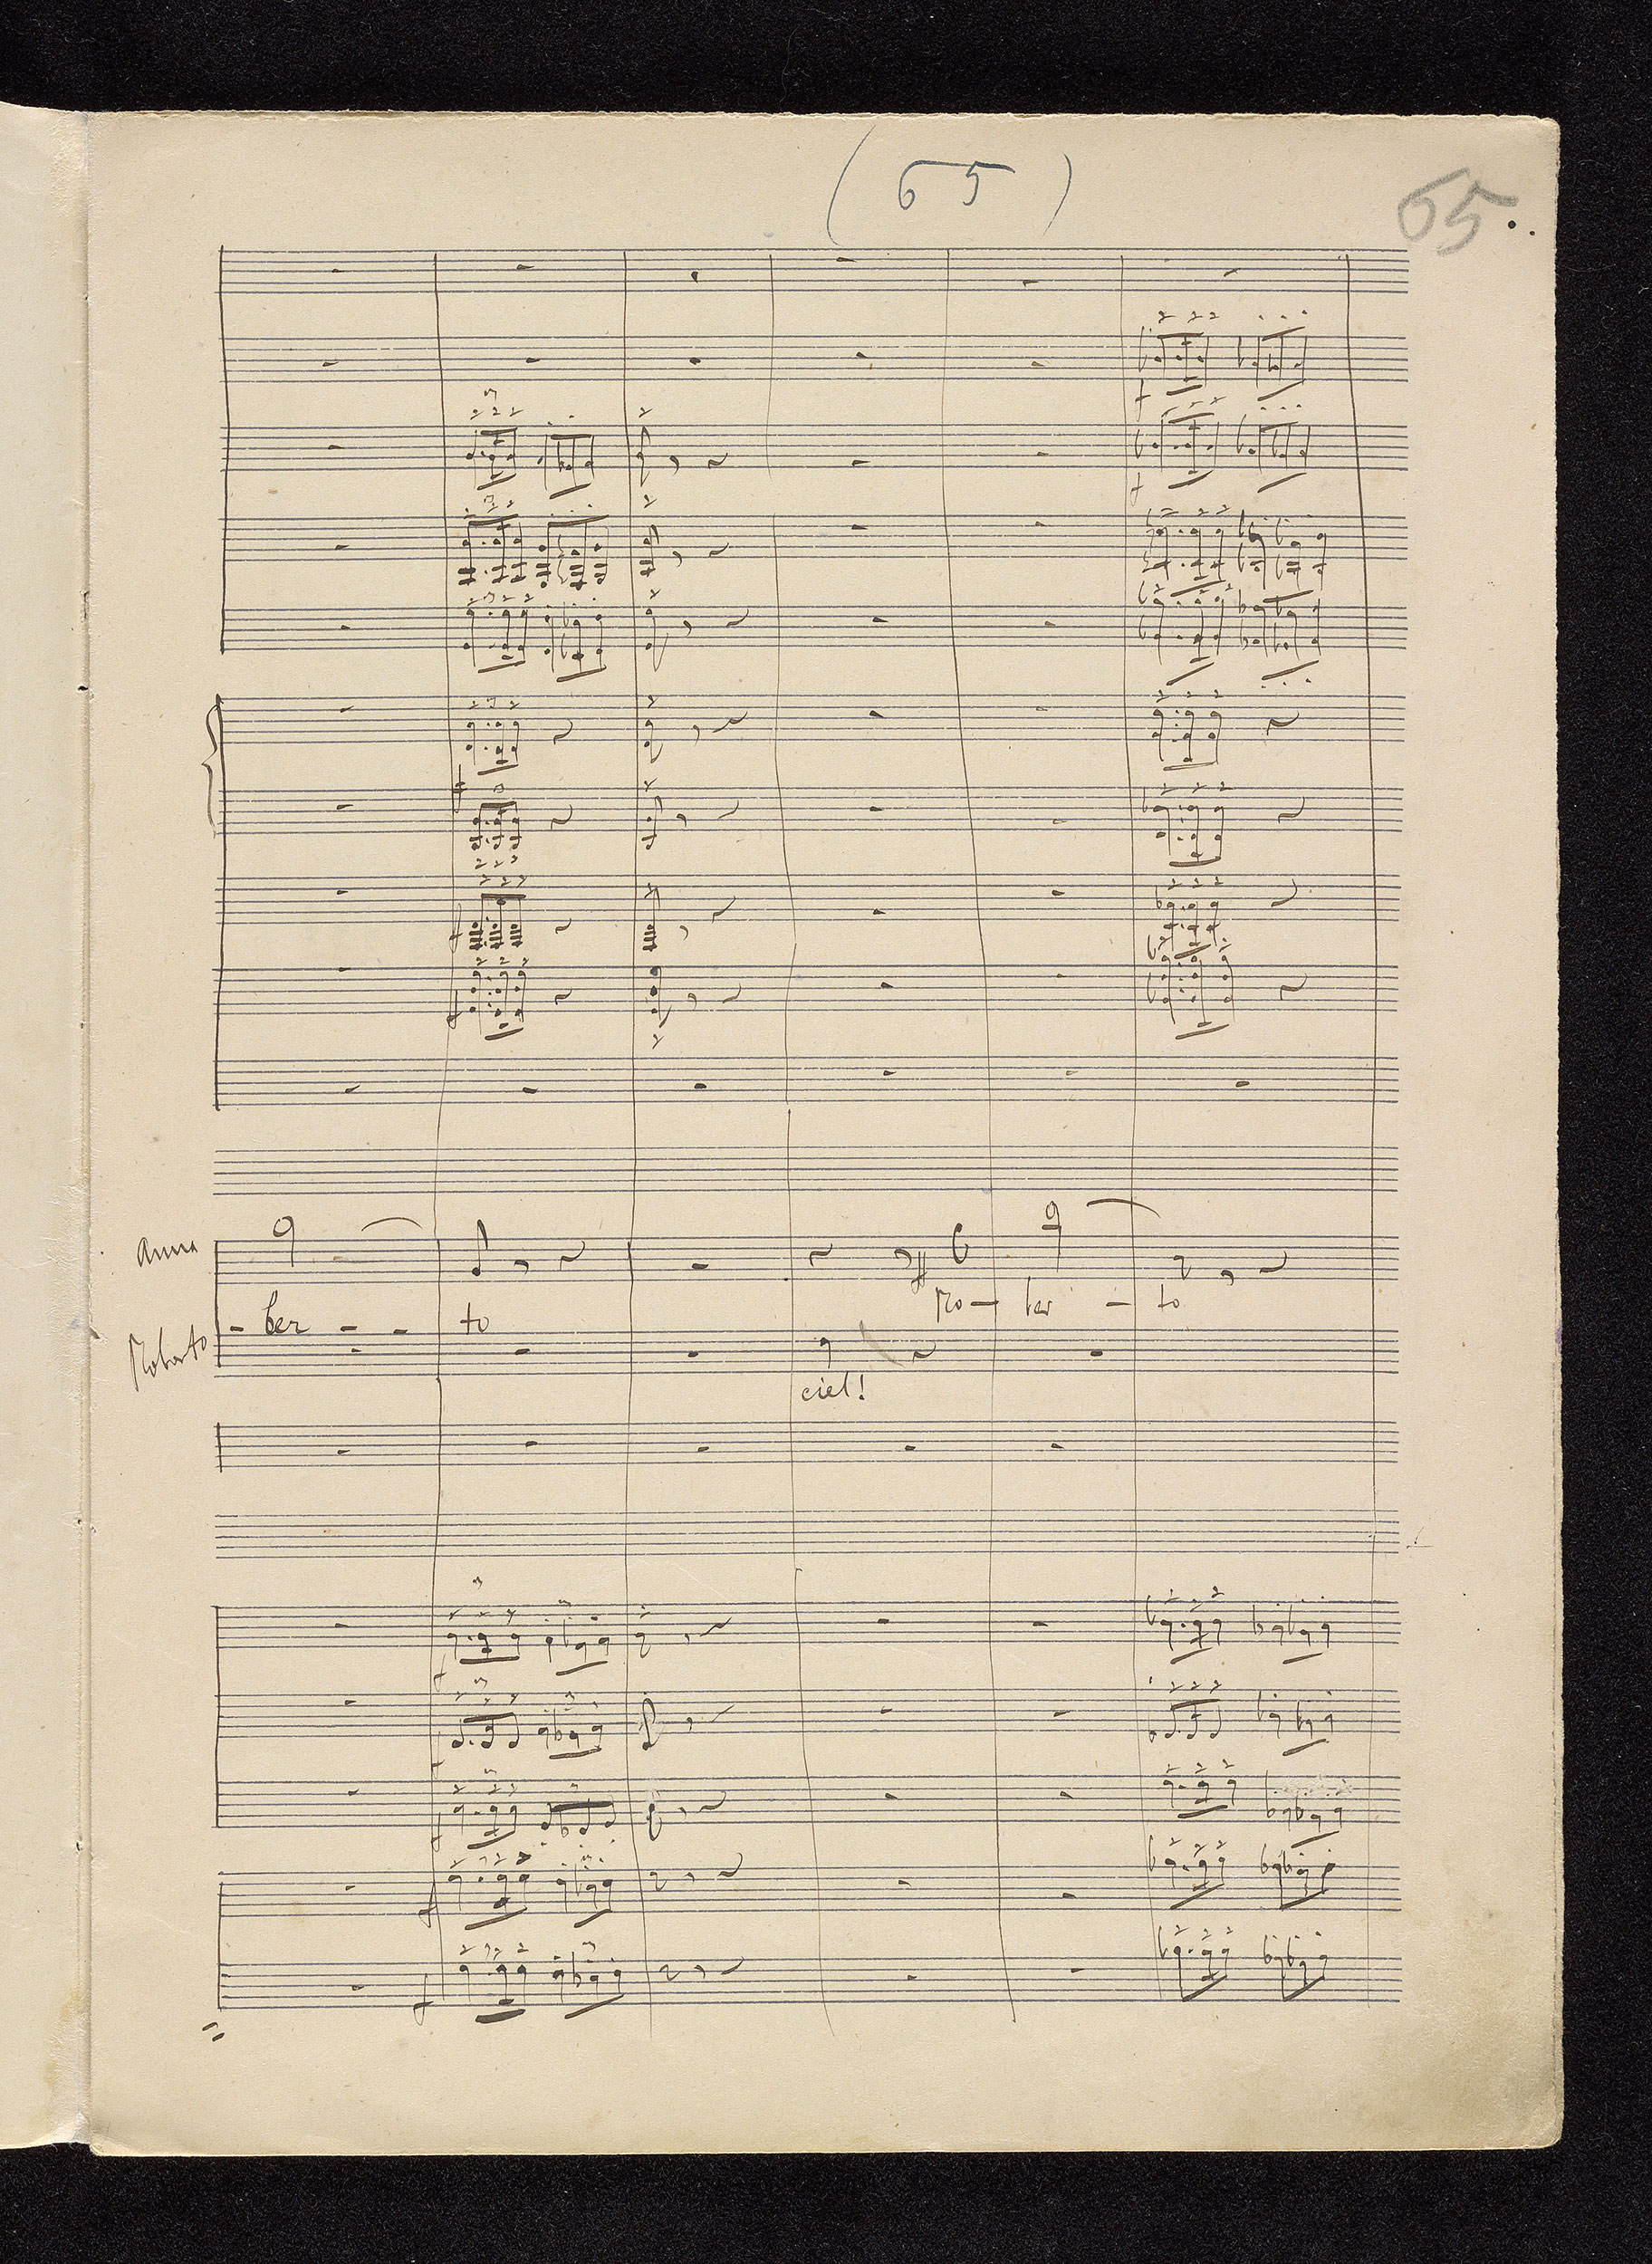 (65)
65.
Anna
Ro - ber - to
- ber - - to
Roberto
ciel!